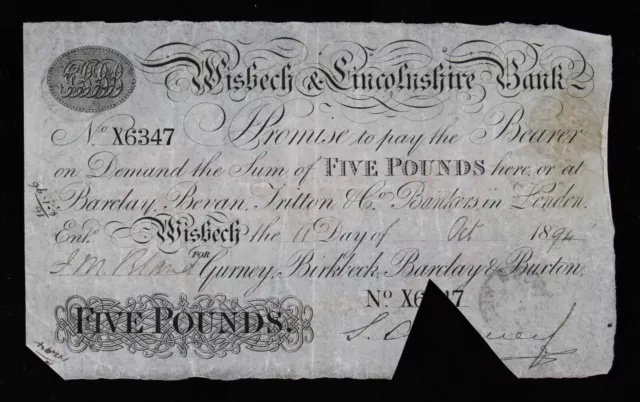 Wisbech & Lincolnshire Bank
No. X6347 I Promise to pay the Bearer
on Demand the Sum of FIVE POUNDS here, or at
Barclay, Bevan, Tritton & Co. Bankers in London.
Entd. Wisbech the 11 Day of Oct 1894
FOR Gurney, Birkbeck, Barclay & Buxton.
No X6 47
FIVE POUNDS.